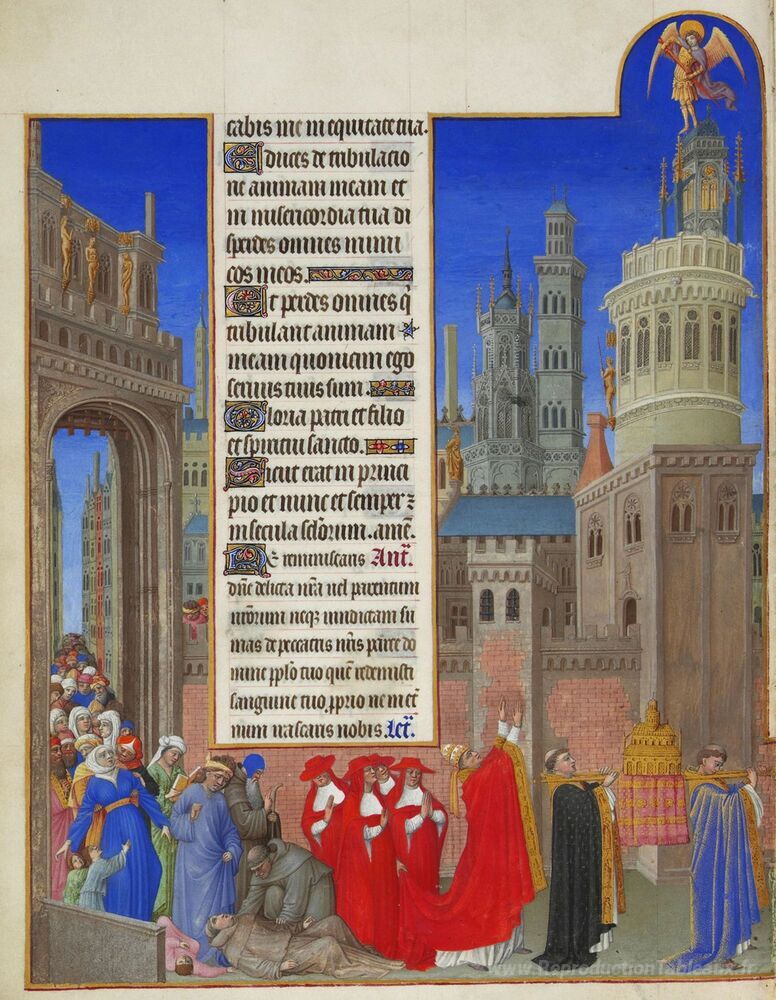 cabis me in equitate tua.
Educes de tribulacio
ne animam meam et
in misericordia tua di
sperdes omnes inimi
cos meos.
Et perdes omnes q̄
tribulant animam
meam quoniam ego
servus tuus sum.
Gloria patri et filio
et spiritui sancto.
Sicut erat in princi
pio et nunc et semper ⁊
in secula sclorum. amē.
Ne reminiscaris Ant.
dn̄e delicta nr̄a vel parentum
nr̄orum neqꝫ vindictam su
mas de peccatis nr̄is parce do
mine pplo tuo quē redemisti
sanguine tuo pprio ne in et
num irascaris nobis. Let.
www.ReproductionTableaux.fr